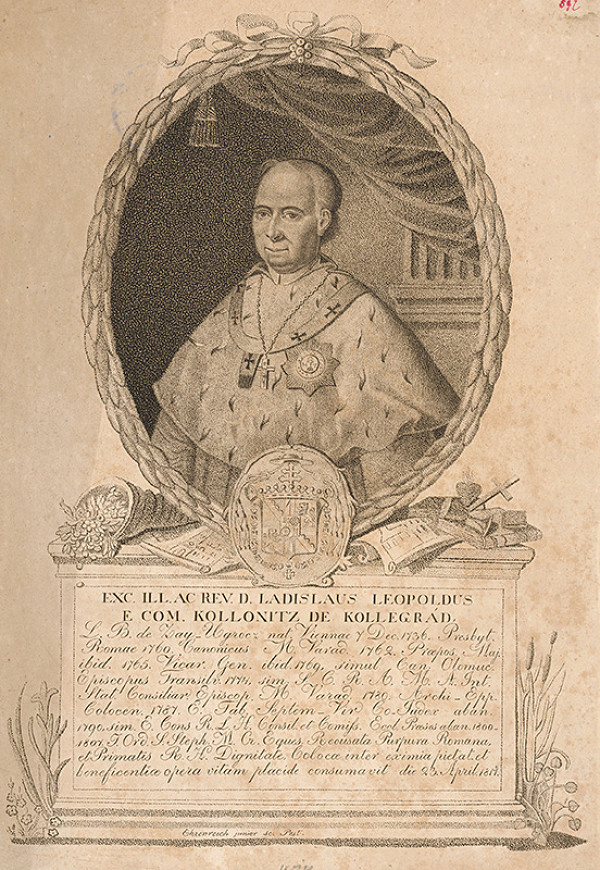 EXC. ILL. AC REV. D. LADISLAUS LEOPOLDUS
E COM. KOLLONITZ DE KOLLEGRAD.
L. B. de Zay-Ugrocz nat. Viennae 7 Dec. 1736. Presbyt.
Romae 1760. Canonicus M. Varad. 1762. Praepos. Maj.
ibid. 1765. Vicar. Gen. ibid. 1769. simul Can. Olomuc.
Episcopus Transilv. 1774. sim. S. C. R. A. M. A. Int.
Stat. Consiliar. Episcop. M. Varad. 1780. Archi-Epp.
Colocen. 1787. E. Tab. Septem-Vir. Co-Judex ab an.
1790. sim. E. Cons. R. L. H. Consil. et Comiss. Eccl. Praeses ab an. 1800-
1807. I. Ord. S. Steph. M. Cr. Eques, Recusata Purpura Romana,
et Primatis R. H. Dignitate. Coloca inter eximia pietat. et
beneficentiae opera vitam placide consumavit die 23. April. 1817.
Ehrenreich junior sc. Pest.